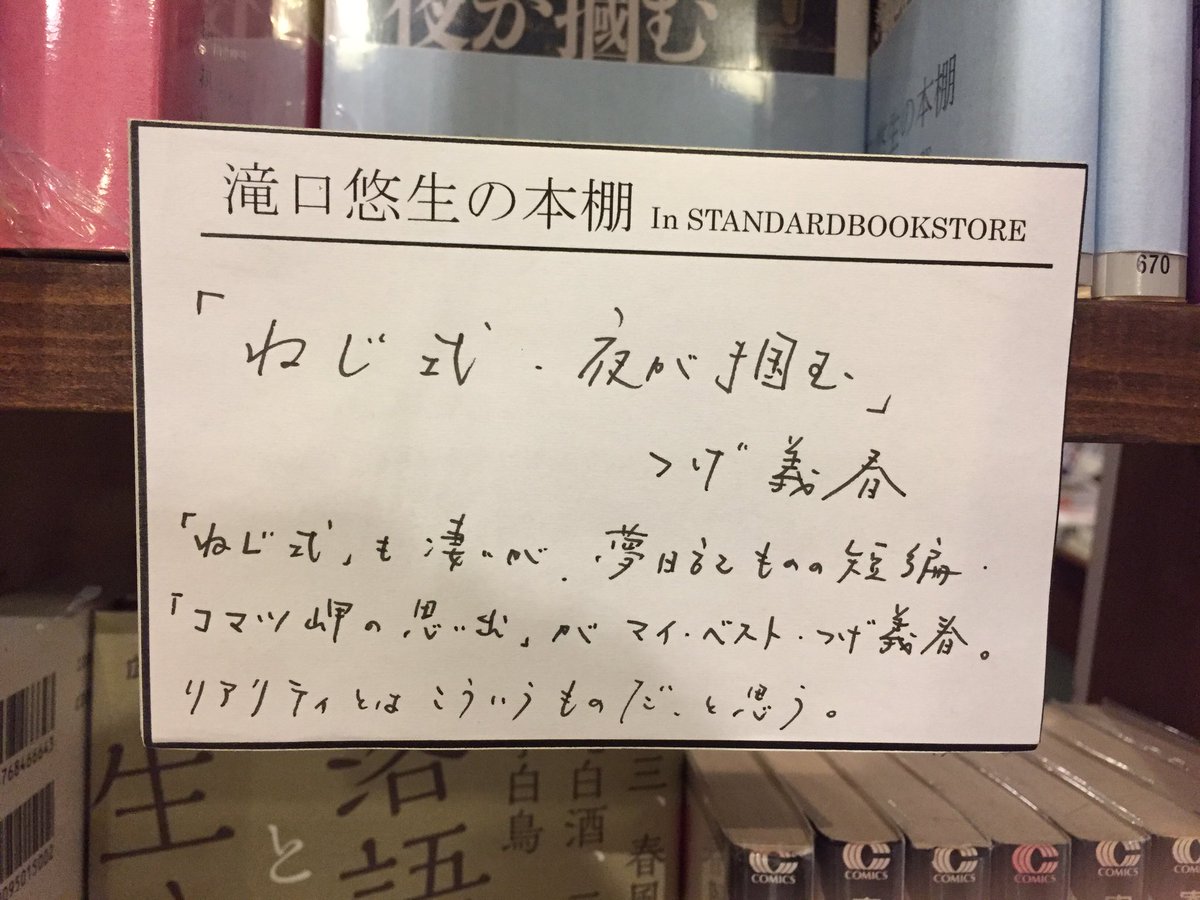 夜が掴む
生の本棚
670
滝口悠生の本棚 In STANDARDBOOKSTORE
「ねじ式・夜が掴む」
つげ義春
「ねじ式」も凄いが、夢日記ものの短編・
「コマツ岬の思い出」がマイ・ベスト・つげ義春。
リアリティとはこういうものだ、と思う。
768466643
95015002
生
落語
と
白鳥
白酒
三
春風
COMICS
COMICS
COMICS
COMICS
COMICS
COMICS